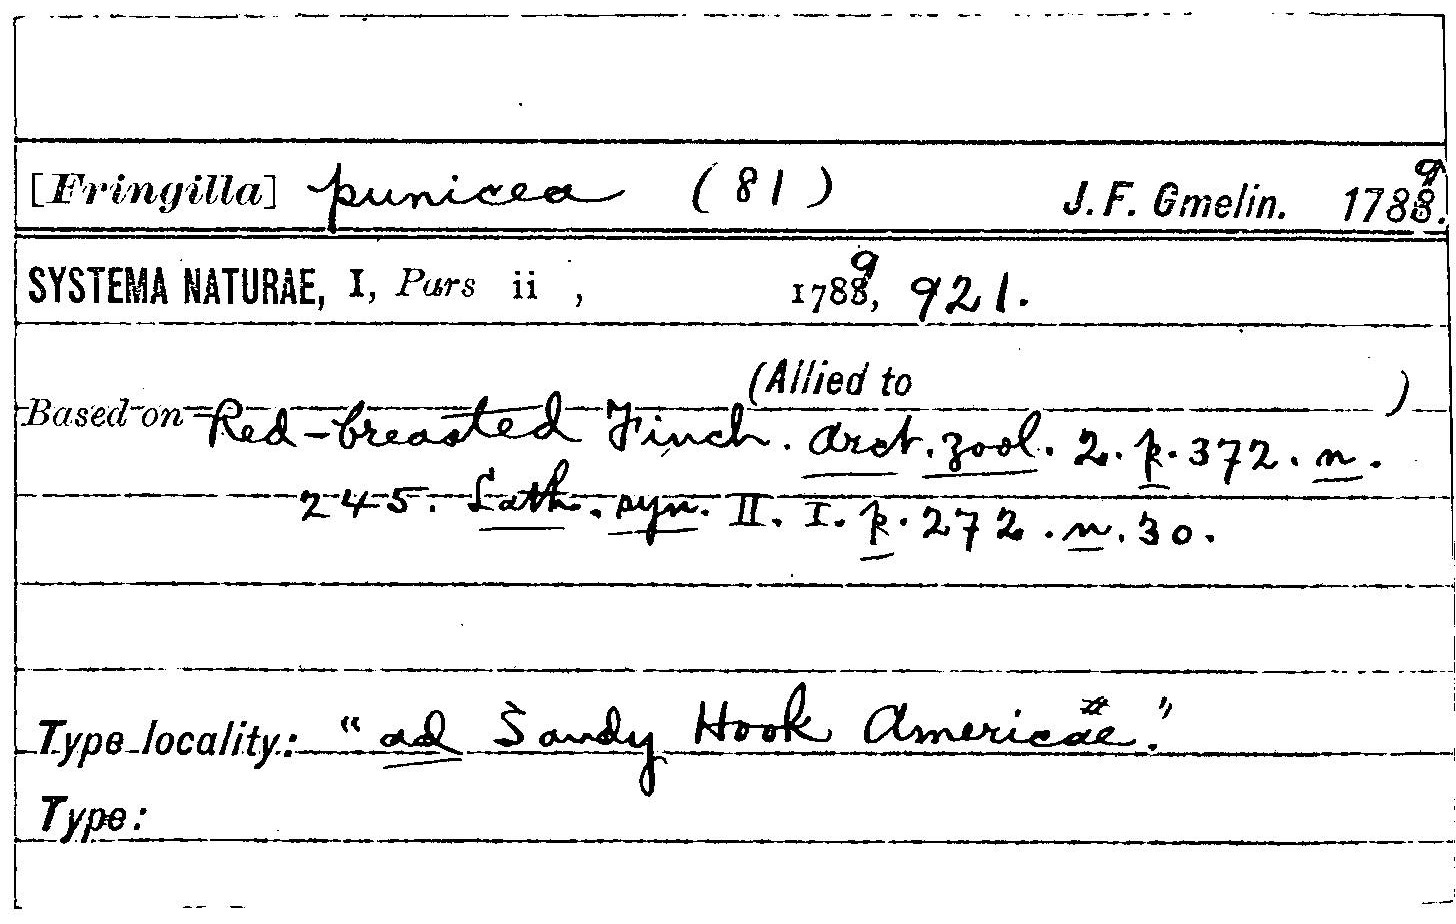 [Fringilla] punicea (81) J. F. Gmelin. 1789.
SYSTEMA NATURAE, I, Pars ii , 1789, 921.
(Allied to )
Based on Red-breasted Finch. Arct. zool. 2. p. 372. n.
245. Lath. syn. II. I. p. 272. n. 30.
Type locality: "ad Sandy Hook Americae#."
Type: